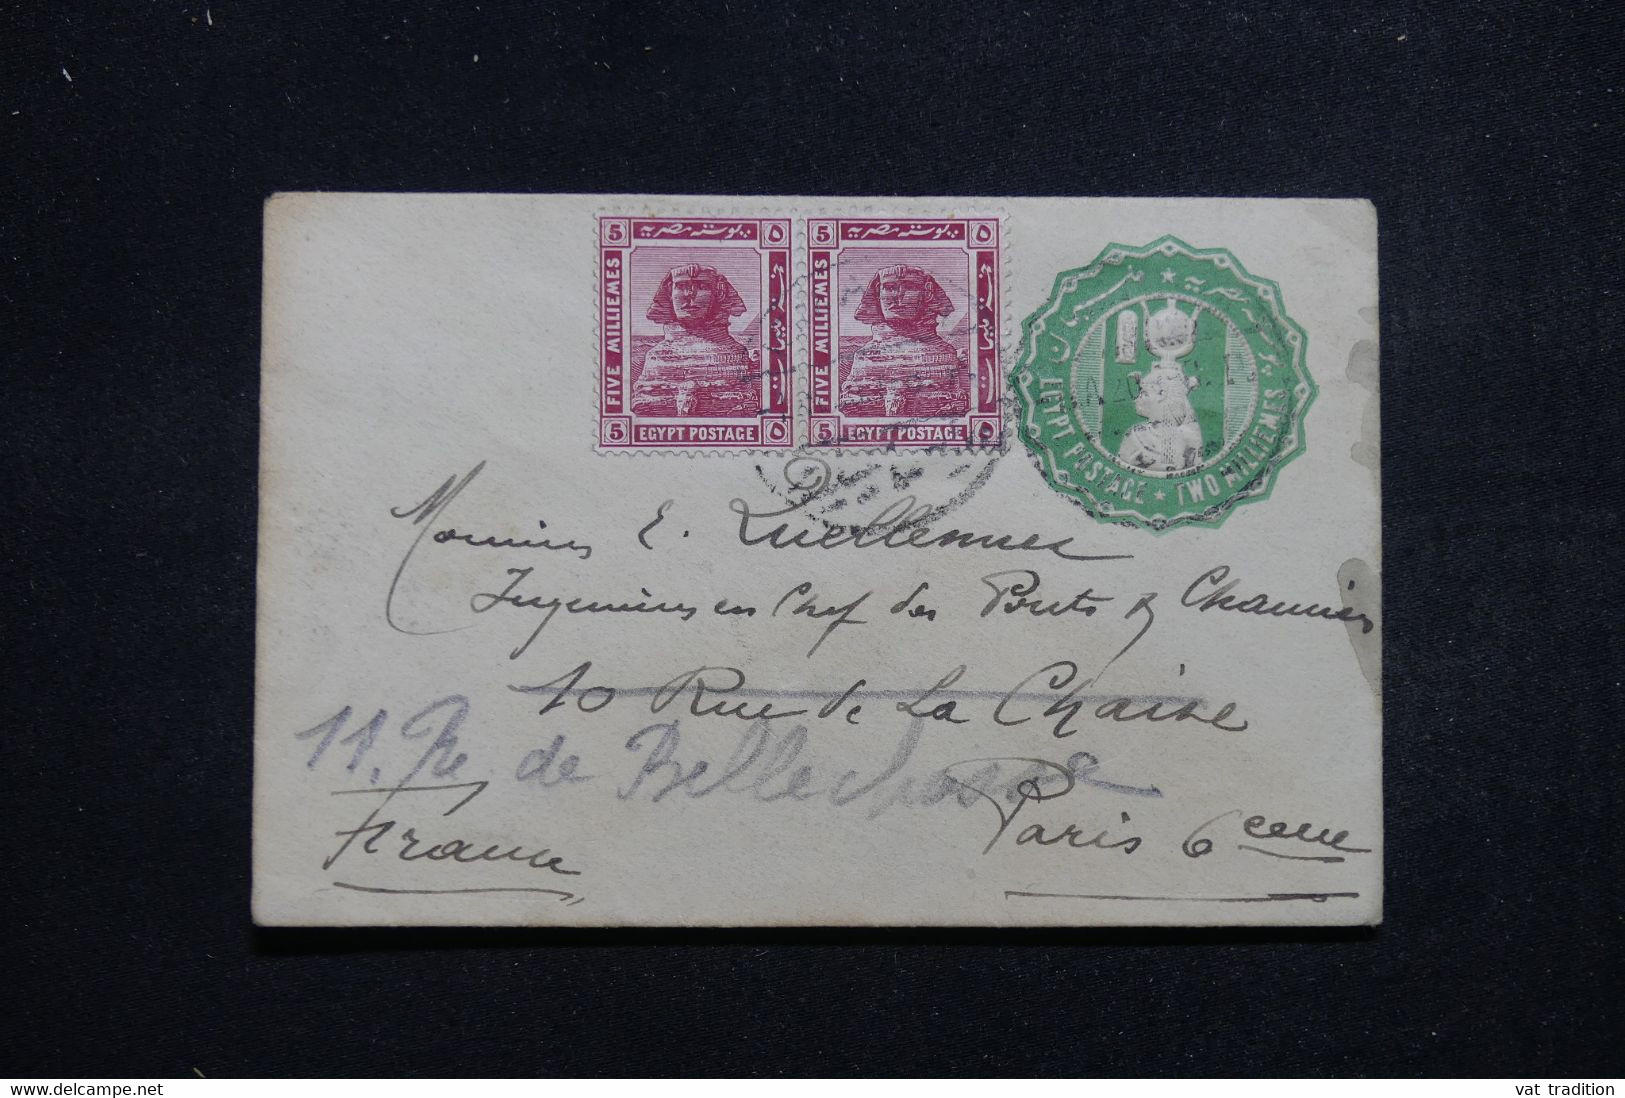 5 بوستة مصرية ٥ 5 بوستة مصرية ٥
FIVE MILLIEMES FIVE MILLIEMES
5 EGYPT POSTAGE ٥ 5 EGYPT POSTAGE ٥
EGYPT POSTAGE ★ TWO MILLIEMES
E. Quellennec
Ingénieur en Chef des Ponts & Chaussées
10 Rue de La Chaise
11. Re de Bellechasse
Paris 6eme
France
www.delcampe.net
vat_tradition